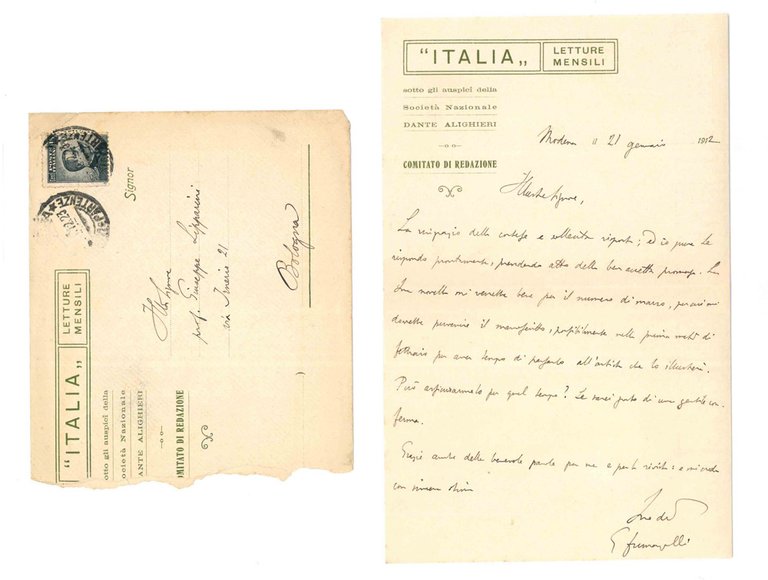 "ITALIA„
LETTURE
MENSILI
sotto gli auspici della
Società Nazionale
DANTE ALIGHIERI
COMITATO DI REDAZIONE
Modena il 21 gennaio 1912
Illustre Signore,
La ringrazio della cortese e sollecita risposta; ed io pure Le
rispondo prontamente, prendendo atto della ben accetta promessa. La
Sua novella mi verrebbe bene per il numero di marzo, per cui mi
dovrebbe pervenire il manoscritto, possibilmente nella prima metà di
febbraio per aver tempo di passarlo all'artista che lo illustrerà.
Può assicurarmelo per quel tempo? Le sarei grato di una gentile con-
ferma.
Grazie anche delle benevole parole per me e per la rivista: e mi creda
con sincera stima
Suo dev
Signor
Ill. Signore
prof. Giuseppe Lipparini
via Irnerio 21
Bologna
"ITALIA„
LETTURE
MENSILI
otto gli auspici della
ocietà Nazionale
DANTE ALIGHIERI
OMITATO DI REDAZIONE
PARTENZE